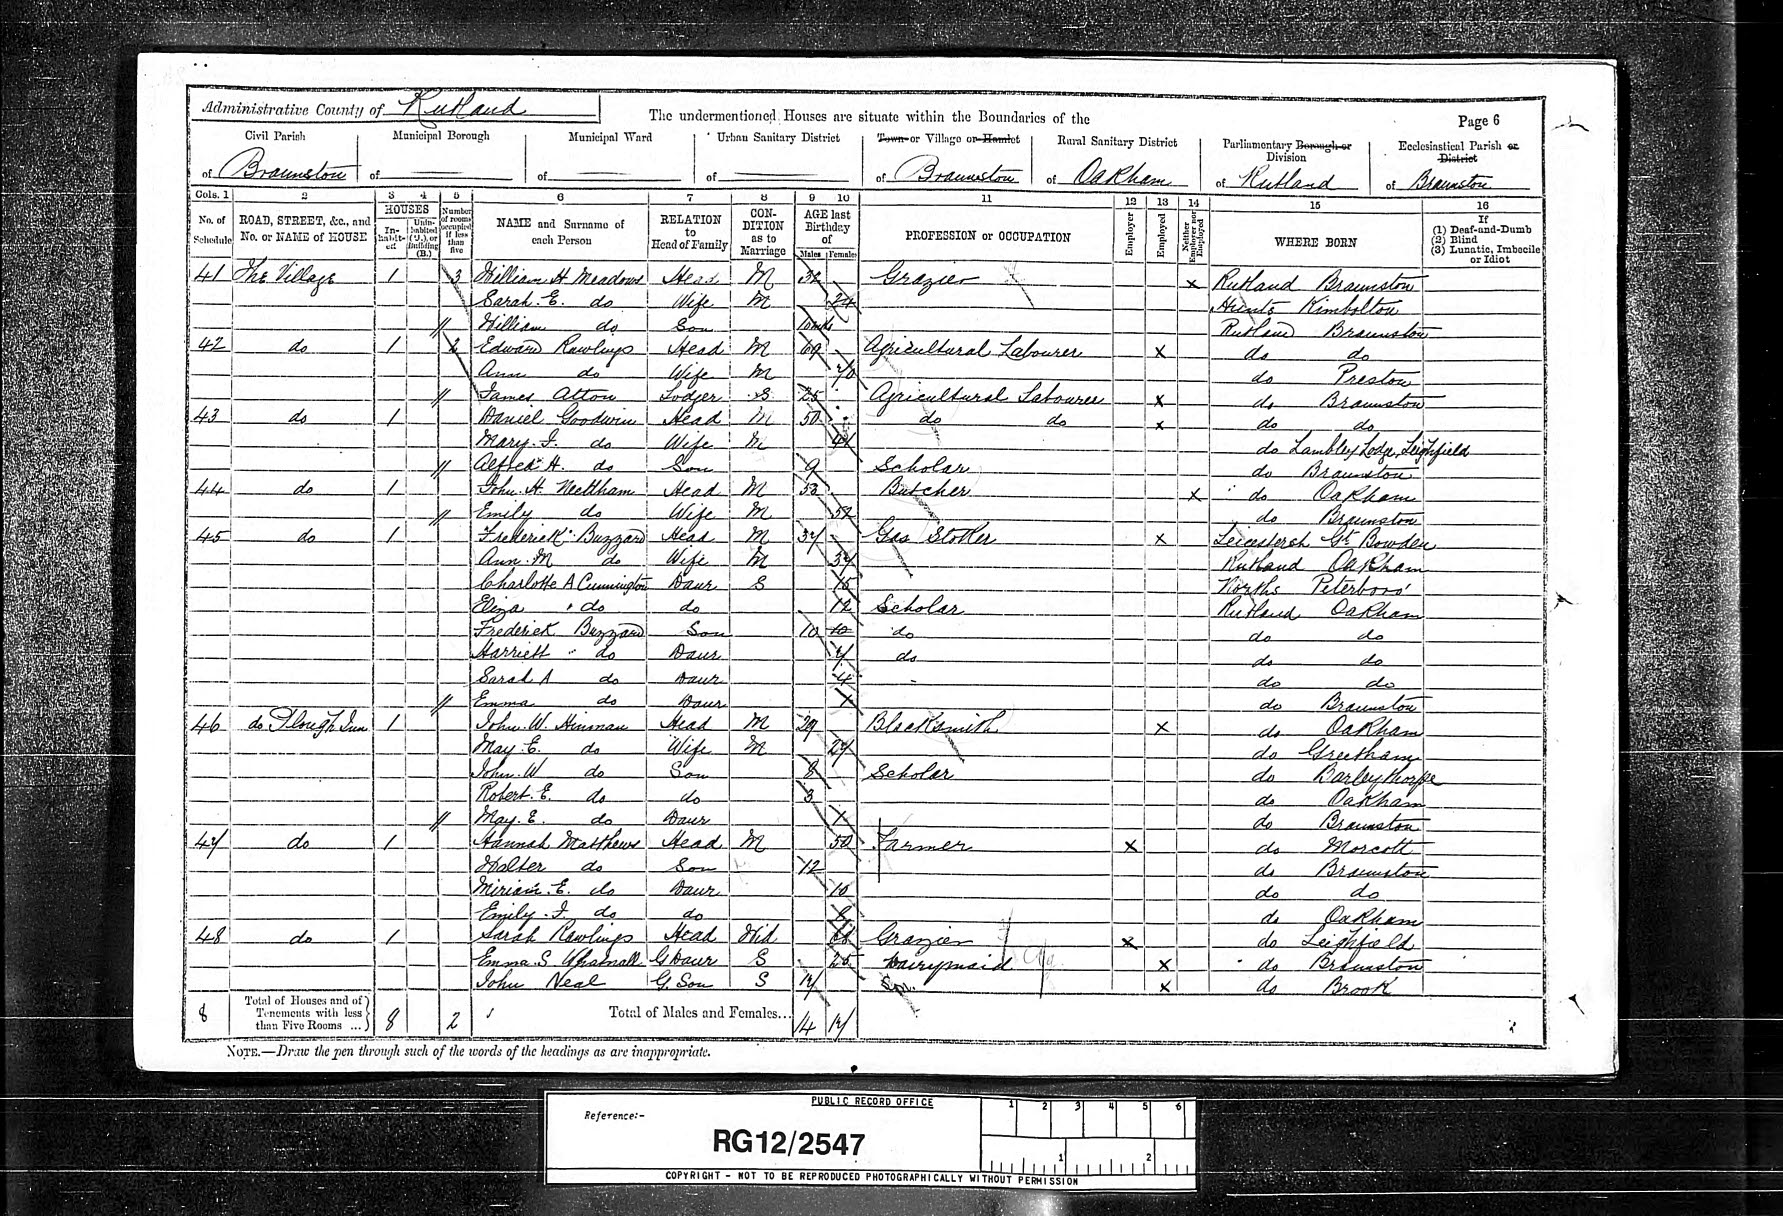 Administrative County of Rutland
The undermentioned Houses are situate within the Boundaries of the
Page 6
Civil Parish of Braunston
Municipal Borough of
Municipal Ward of
Urban Sanitary District of
Town or Village or Hamlet of Braunston
Rural Sanitary District of Oakham
Parliamentary Borough or Division of Rutland
Ecclesiastical Parish or District of Braunston
Cols. 1 2 3 4 5 6 7 8 9 10 11 12 13 14 15 16
No. of Schedule
ROAD, STREET, &c., and No. or NAME of HOUSE
HOUSES
In-habit-ed
Unin-habited (U.), or Building (B.)
Number of rooms occupied if less than five
NAME and Surname of each Person
RELATION to Head of Family
CON-DITION as to Marriage
AGE last Birthday of
Males Females
PROFESSION or OCCUPATION
Employer
Employed
Neither Employer nor Employed
WHERE BORN
If
(1) Deaf-and-Dumb
(2) Blind
(3) Lunatic, Imbecile or Idiot
41 The Village 1 3 William H Meadows Head M Grazier x Rutland Braunston
Sarah. E. do Wife M 24 Hunts Kimbolton
// William do Son 10mths Rutland Braunston
42 do 1 2 Edward Rawlings Head M 69 Agricultural Labourer x do do
Ann do Wife M 70 do Preston
// James Atton Lodger S 25 Agricultural Labourer x do Braunston
43 do 1 Daniel Goodwin Head M 50 do do x do do
Mary. J. do Wife M do Lambley Lodge, Leighfield
// Alfred H. do Son 9 Scholar do Braunston
44 do 1 John. H. Needham Head M 53 Butcher x do Oakham
// Emily do Wife M 52 do Braunston
45 do 1 Frederick Buzzard Head M 37 Gas Stoker x Leicestersh Gt Bowden
Ann. M do Wife M 37 Rutland Oakham
Charlotte A Cunnington Daur S 15 Norths Peterboro'
Eliza do do 12 Scholar Rutland Oakham
Frederick Buzzard Son 10 10 do do do
Harriett do Daur 7 do do do
Sarah A do Daur 4 do do
// Emma do Daur 1 do Braunston
46 do Plough Inn 1 John. W. Hinman Head M 29 Blacksmith x do Oakham
May. E. do Wife M 27 do Greetham
John. W do Son 8 Scholar do Barleythorpe
Robert. E. do do 3 do Oakham
// May. E. do Daur 1 do Braunston
47 do 1 Hannah Matthews Head M 50 Farmer x do Morcott
Walter do Son 12 do Braunston
Miriam. E. do Daur 10 do do
Emily. J. do do 8 do Oakham
48 do 1 Sarah Rawlings Head Wid Grazier x do Leighfield
Emma. S. G Daur S 25 Dairymaid x do Braunston
John Neal G. Son S 17 x do Brook
8 Total of Houses and of Tenements with less than Five Rooms ... 8 2 Total of Males and Females... 14 17
NOTE.—Draw the pen through such of the words of the headings as are inappropriate.
PUBLIC RECORD OFFICE
1 2 3 4 5 6
Reference:-
RG12/2547
1 2
COPYRIGHT - NOT TO BE REPRODUCED PHOTOGRAPHICALLY WITHOUT PERMISSION